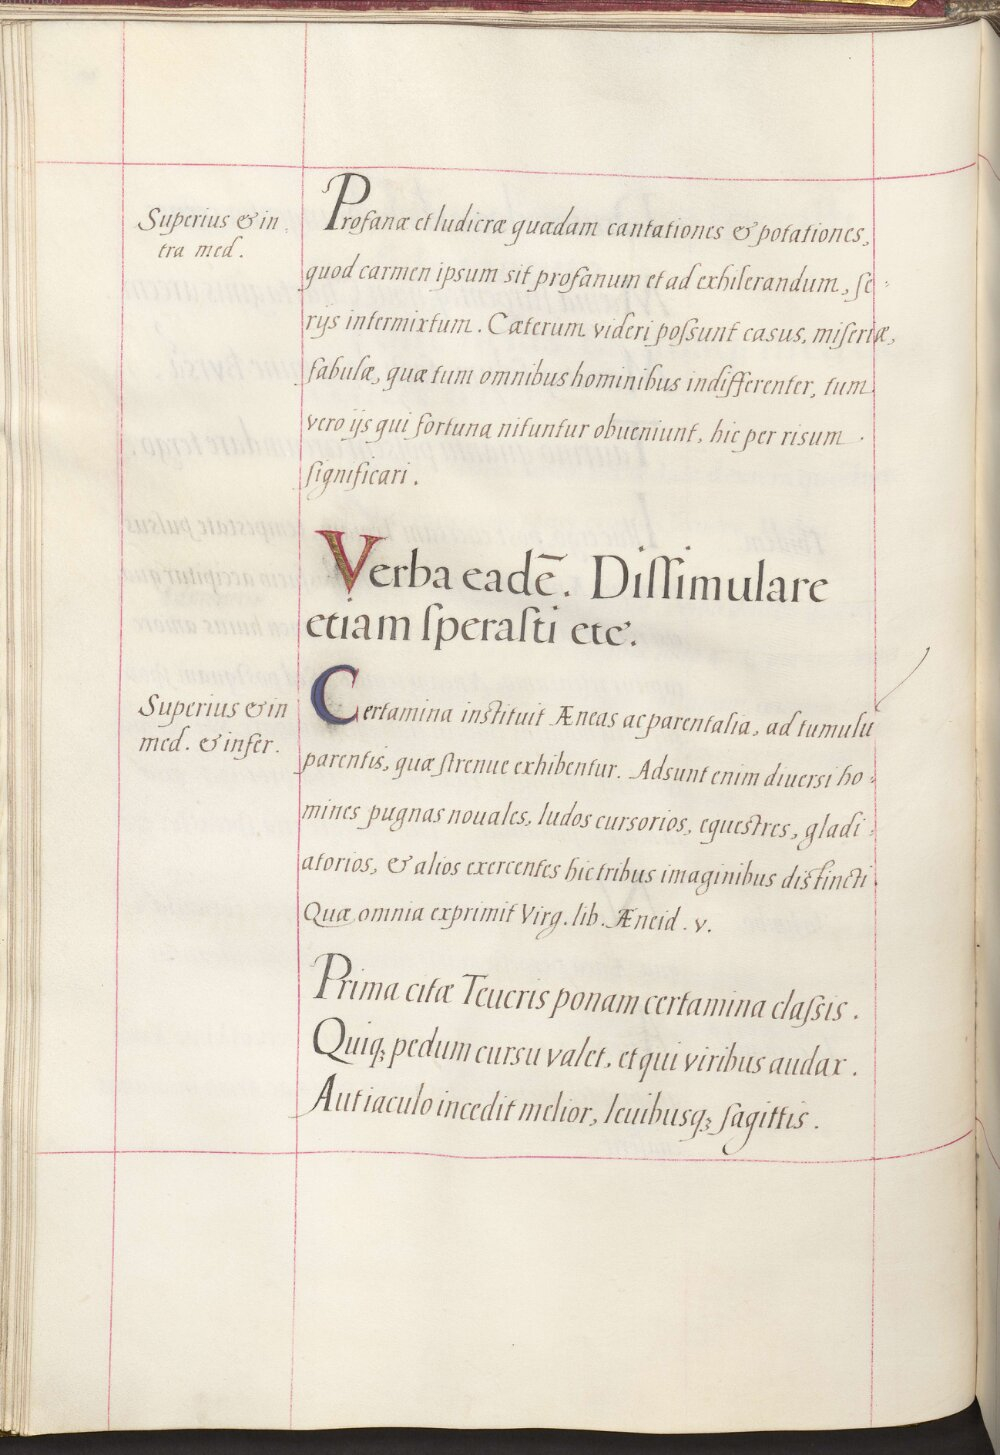 Superius & in
tra med.
Profanæ et ludicræ quædam cantationes & potationes,
quod carmen ipsum sit profanum et ad exhilerandum, ſe-
rijs intermixtum. Cæterum videri poſsunt casus, miſeriæ,
fabulæ, quæ tum omnibus hominibus indifferenter, tum
vero ijs qui fortuna nituntur obueniunt, hic per risum
ſignificari.
Verba eadē. Diſſimulare
etiam ſperaſti etc.
Superius & in
med. & infer.
Certamina inſtituit Æneas ac parentalia, ad tumulū
parentis, quæ ſtrenue exhibentur. Adsunt enim diuersi ho-
mines pugnas nouales, ludos cursorios, equeſtres, gladi-
atorios, & alios exercentes hic tribus imaginibus diſtincti.
Quæ omnia exprimit Virg. lib. Æneid. v.
Prima citæ Teucris ponam certamina claſsis.
Quiqꝫ pedum cursu valet, et qui viribus audax.
Aut iaculo incedit melior, leuibusqꝫ ſagittis.